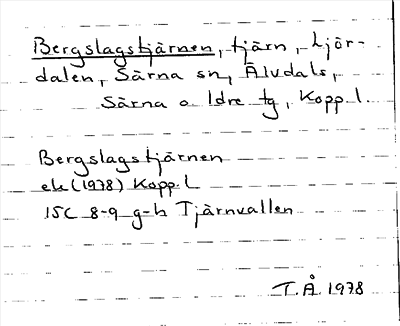 Bergslagstjärnen, tjärn, Ljör-
dalen, Särna sn, Älvdals,
Särna o Idre tg, Kopp. l.
Bergslagstjärnen
ek (1978) Kopp. l
15C 8-9 g-h Tjärnvallen
T.Å. 1978